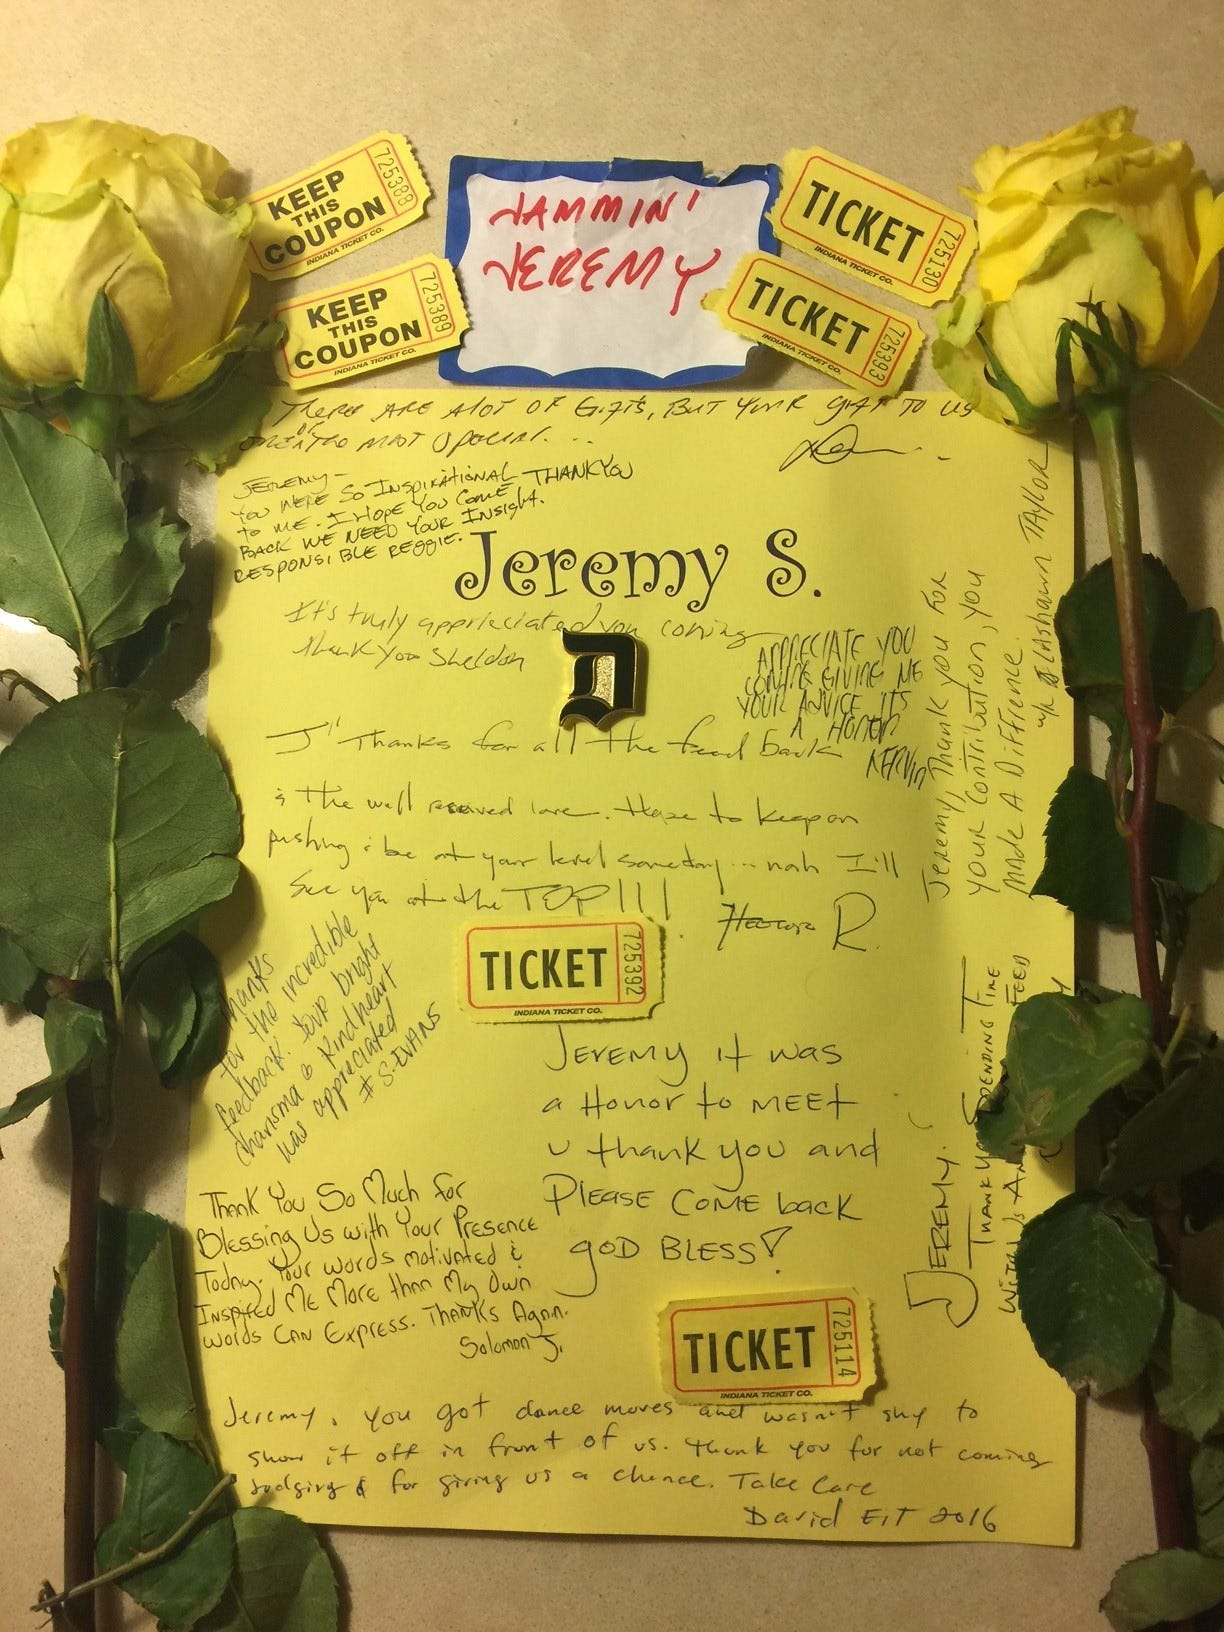 KEEP
THIS
COUPON
INDIANA TICKET CO.
725388
KEEP
THIS
COUPON
INDIANA TICKET CO.
725389
JAMMIN'
JEREMY
TICKET
INDIANA TICKET CO.
725130
TICKET
INDIANA TICKET CO.
725393
THERE ARE ALOT OF GIFTS, BUT YOUR GIFT TO US
MOST SPECIAL...
JEREMY-
YOU WERE SO INSPIRATIONAL THANKYOU
to ME. I HOPE YOU COME
BACK WE NEED YOUR INSIGHT.
RESPONSIBLE REGGIE.
Jeremy S.
It's truly appreciated you coming
thank you Sheldon
D
APPRECIATE YOU
COMING GIVING ME
YOUR ADVICE ITS
A HONOR
KERVIN
J" Thanks for all the feed back
& the well received love. Have to keep on
pushing & be at your level someday... nah I'll
see you at the TOP!!!
R.
Jeremy, Thank you FOR
your contribution, you
MADE A DIFFERENCE.
LASHAWN TAYLOR
TICKET
INDIANA TICKET CO.
725392
Thanks
for the incredible
feedback. Your bright
charisma & kindheart
was appreciated
#S.EVANS
JEREMY it was
a HONOR to MEET
u thank you and
PLEASE COME back
GOD BLESS!
JEREMY.
THANK YOU SPENDING TIME
WITH US AN FEED
THANK YOU SO MUCH for
Blessing Us with Your Presence
Today. Your words motivated &
Inspired Me More than My Own
words CAN EXPRESS. THANKS Again.
Solomon J.
TICKET
INDIANA TICKET CO.
725114
Jeremy, you got dance moves and wasn't shy to
show it off in front of us. thank you for not coming
judging & for giving us a chance. Take Care
David EIT 2016